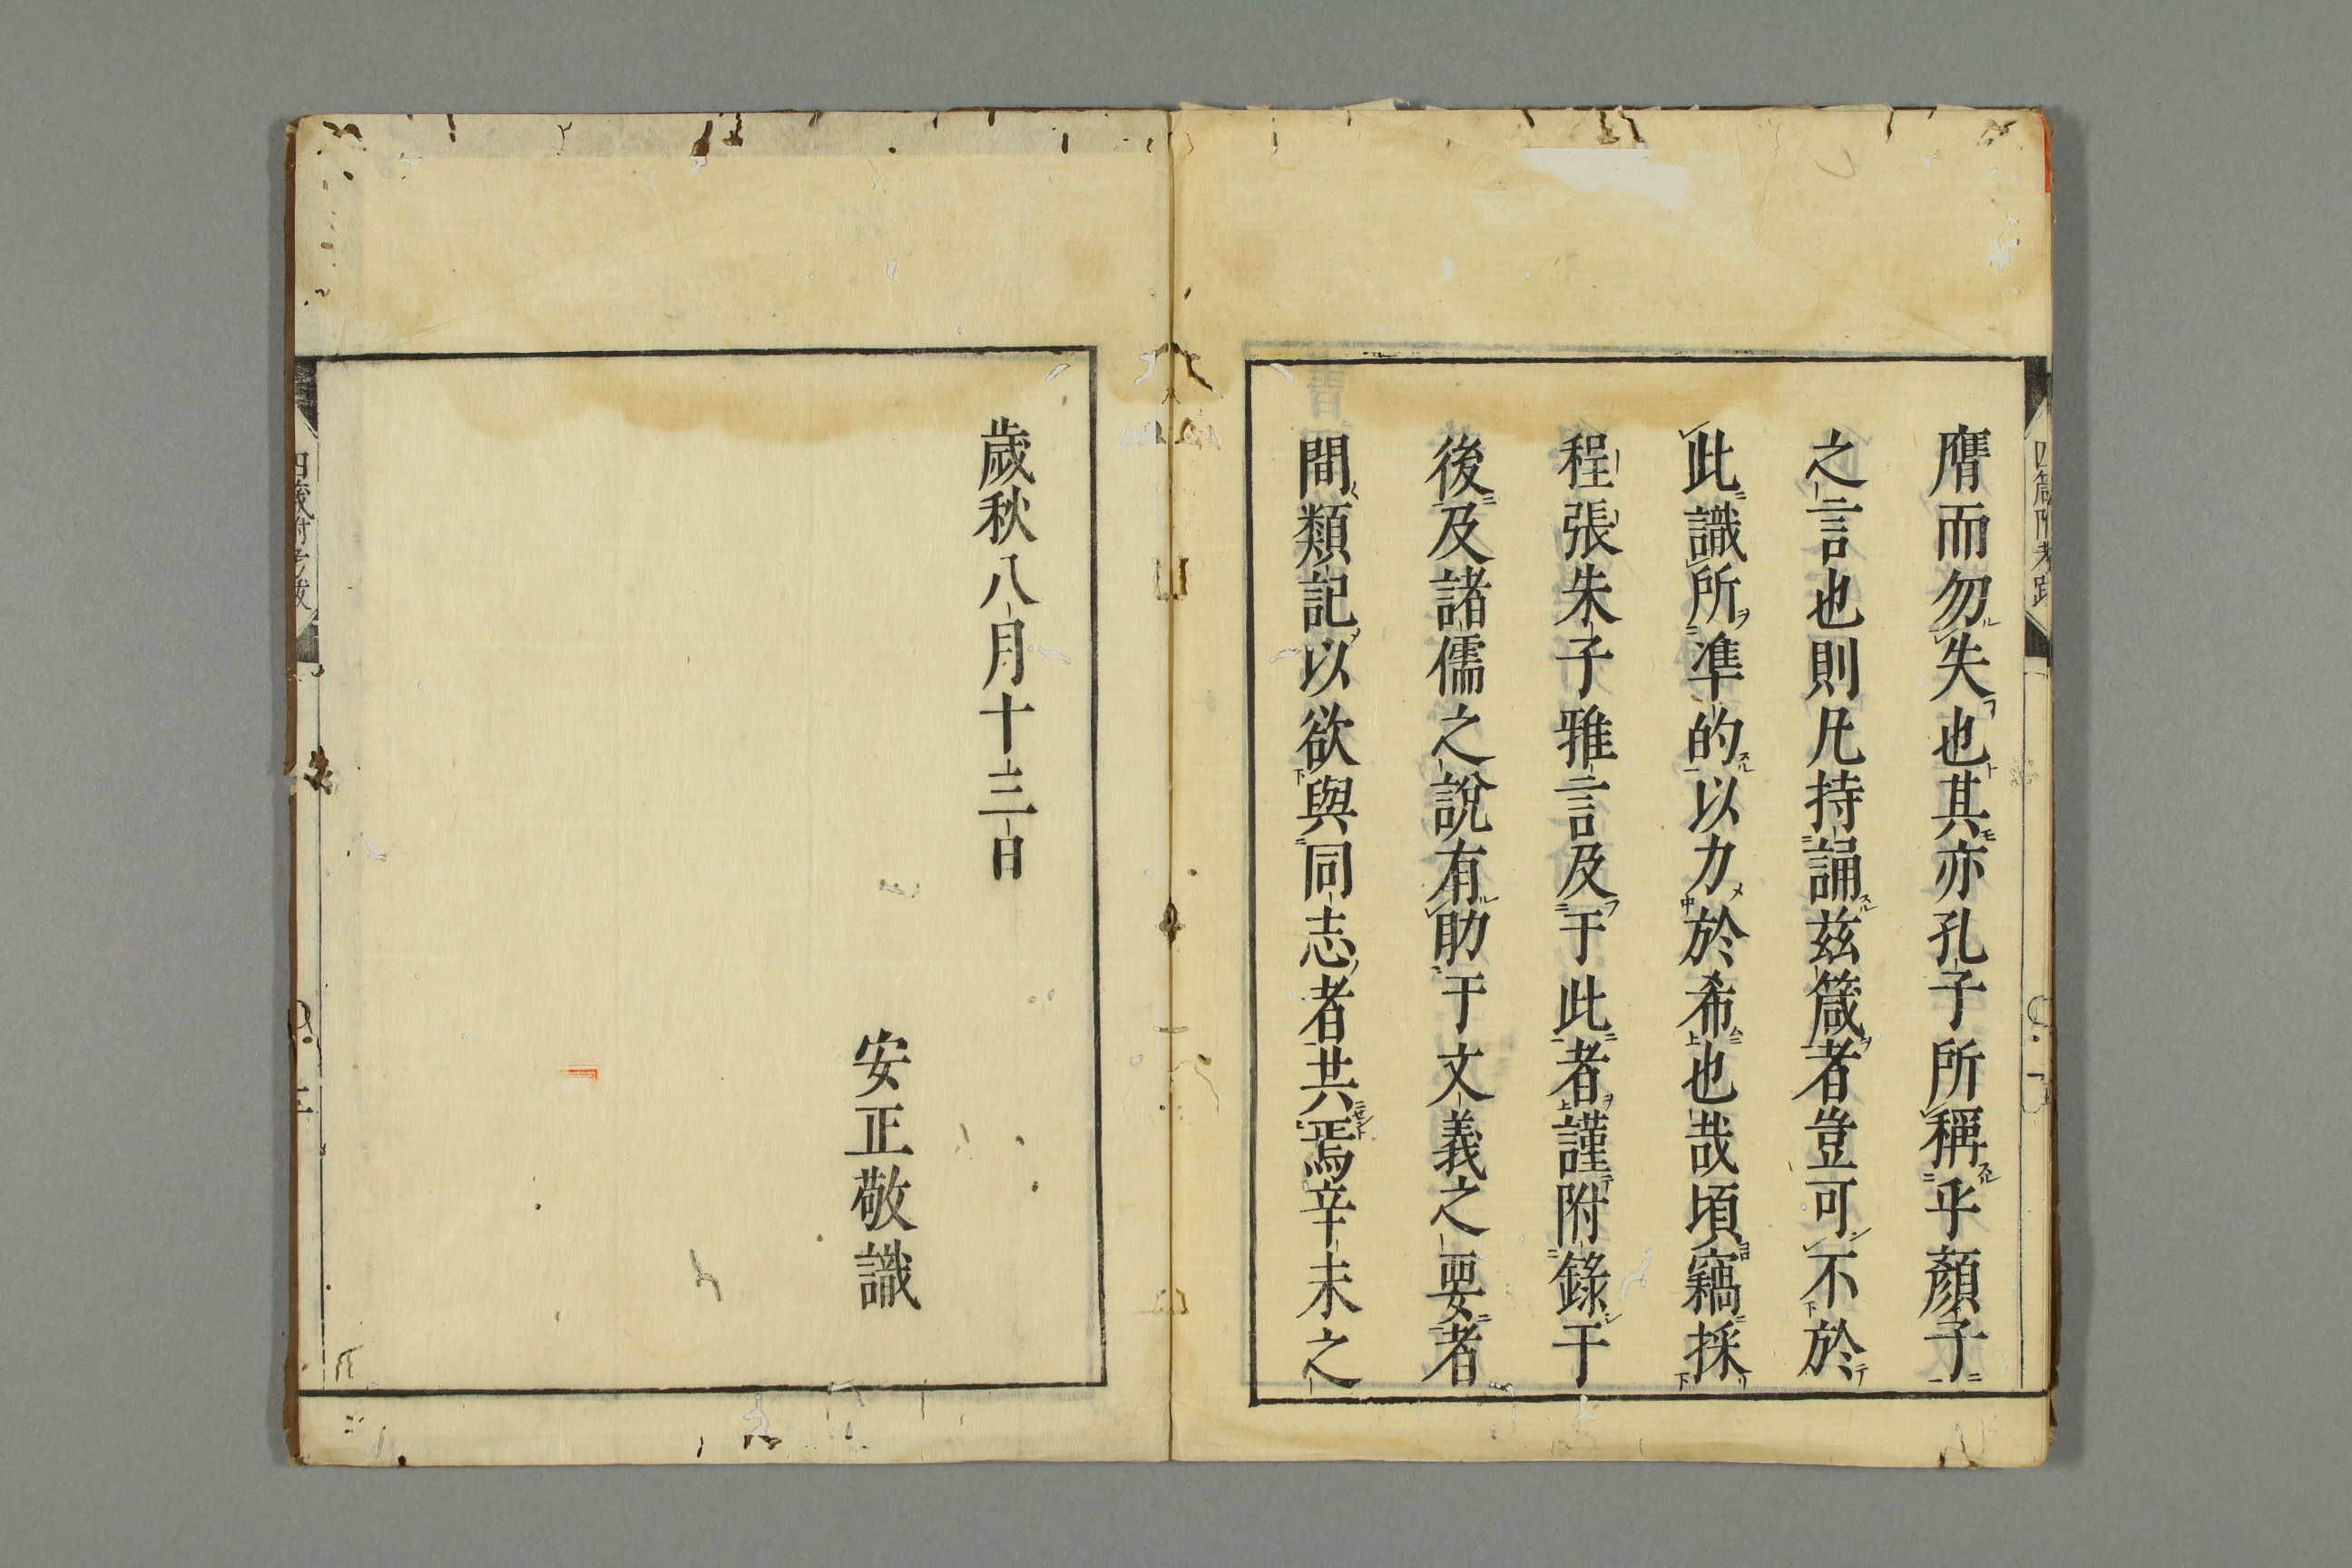 膺而勿失也其亦孔子所稱乎顏子
之言也則凡持誦茲箴者豈可不於
此識所準的以力於希也哉頃竊採
程張朱子雅言及于此者謹附錄于
後及諸儒之說有助于文義之要者
間類記以欲與同志者共焉辛未之
歲秋八月十三日
安正敬識
四箴附考跋